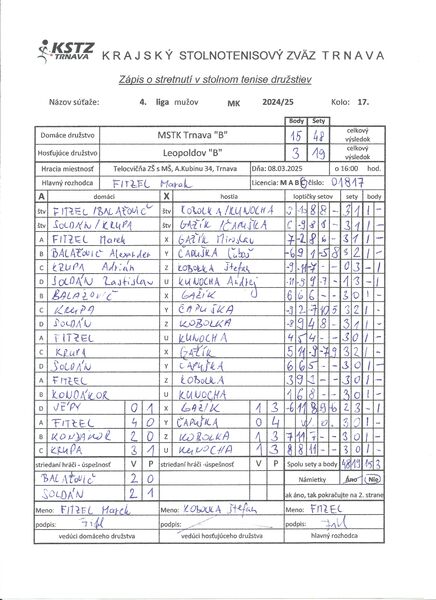 KSTZ
TRNAVA
KRAJSKÝ STOLNOTENISOVÝ ZVÄZ TRNAVA
Zápis o stretnutí v stolnom tenise družstiev
Názov súťaže: 4. liga mužov MK 2024/25 Kolo: 17.
Body Sety
Domáce družstvo MSTK Trnava "B" 15 48 celkový výsledok
Hosťujúce družstvo Leopoldov "B" 3 19 celkový výsledok
Hracia miestnosť Telocvičňa ZŠ s MŠ, A.Kubinu 34, Trnava Dňa: 08.03.2025 o 16:00 hod.
Hlavný rozhodca FITZEL Marek Licencia: M A B C číslo: 01817
A domáci X hostia loptičky setov sety body
štv FITZEL/BALAŽOVIČ štv KOBOLKA/KUNOCHA 31 1-
štv SOLDÁN/KRUPA štv GAŽÍK ČAPUŠKA 31 1-
A FITZEL Marek X GAŽÍK Miroslav 7 -2 8 6 - 31 1-
B BALAŽOVIČ Alexander Y ČAPUŠKA Ľuboš 32 1-
C KRUPA Adrián Z KOBOLKA Štefan 03 -1
D SOLDÁN Rastislav U KUNOCHA Andrej 13 -1
B BALAŽOVIČ X GAŽÍK 6 6 6 - - 30 1-
C KRUPA Y ČAPUŠKA 32 1-
D SOLDÁN Z KOBOLKA -8 9 4 8 - 31 1-
A FITZEL U KUNOCHA 4 5 4 - - 30 1-
C KRUPA X GAŽÍK 5 11 -9 -7 9 32 1-
D SOLDÁN Y ČAPUŠKA 6 6 5 - - 30 1-
A FITZEL Z KOBOLKA 3 9 2 - - 30 1-
B KONDÁKOR U KUNOCHA 1 6 8 - - 30 1-
D 0 1 X GAŽÍK 1 3 -6 11 8 -9 -6 23 -1
A FITZEL 4 0 Y ČAPUŠKA 0 4 W.O. 30 1-
B KONDAKOR 2 0 Z KOBOLKA 1 3 7 11 - - 30 1-
C KRUPA 3 1 U KUNOCHA 1 3 8 8 11 - - 30 1-
striedaní hráči - úspešnosť V P striedaní hráči -úspešnosť V P Spolu sety a body 48 19 15 3
BALAŽOVIČ 2 0 Námietky Áno Nie
SOLDÁN 2 1 ak áno, tak pokračujte na 2. strane
Meno: FITZEL Marek Meno: KOBOLKA Štefan Meno: FITZEL
podpis: podpis: podpis:
vedúci domáceho družstva vedúci hosťujúceho družstva hlavný rozhodca